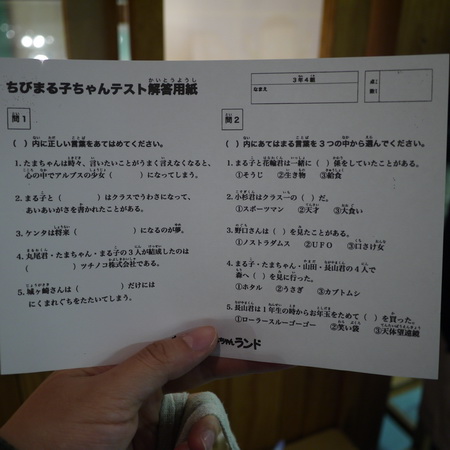 ちびまる子ちゃんテスト解答用紙
3年4組
なまえ
点数
問1
( )内に正しい言葉をあてはめてください。
1. たまちゃんは時々、言いたいことがうまく言えなくなると、
心の中でアルプスの少女( )になってしまう。
2. まる子と( )はクラスでうわさになって、
あいあいがさを書かれたことがある。
3. ケンタは将来( )になるのが夢。
4. 丸尾君・たまちゃん・まる子の3人が結成したのは
( )ツチノコ株式会社である。
5. 城ヶ崎さんは( )だけには
にくまれぐちをたたいてしまう。
問2
( )内にあてはまる言葉を3つの中から選んでください。
1. まる子と花輪君は一緒に( )係をしていたことがある。
①そうじ ②生き物 ③給食
2. 小杉君はクラス一の( )だ。
①スポーツマン ②天才 ③大食い
3. 野口さんは( )を見たことがある。
①ノストラダムス ②UFO ③口さけ女
4. まる子・たまちゃん・山田・長山君の4人で
森へ( )を見に行った。
①ホタル ②うさぎ ③カブトムシ
5. 長山君は1年生の時からお年玉をためて( )を買った。
①ローラースルーゴーゴー ②笑い袋 ③天体望遠鏡
ちゃんランド